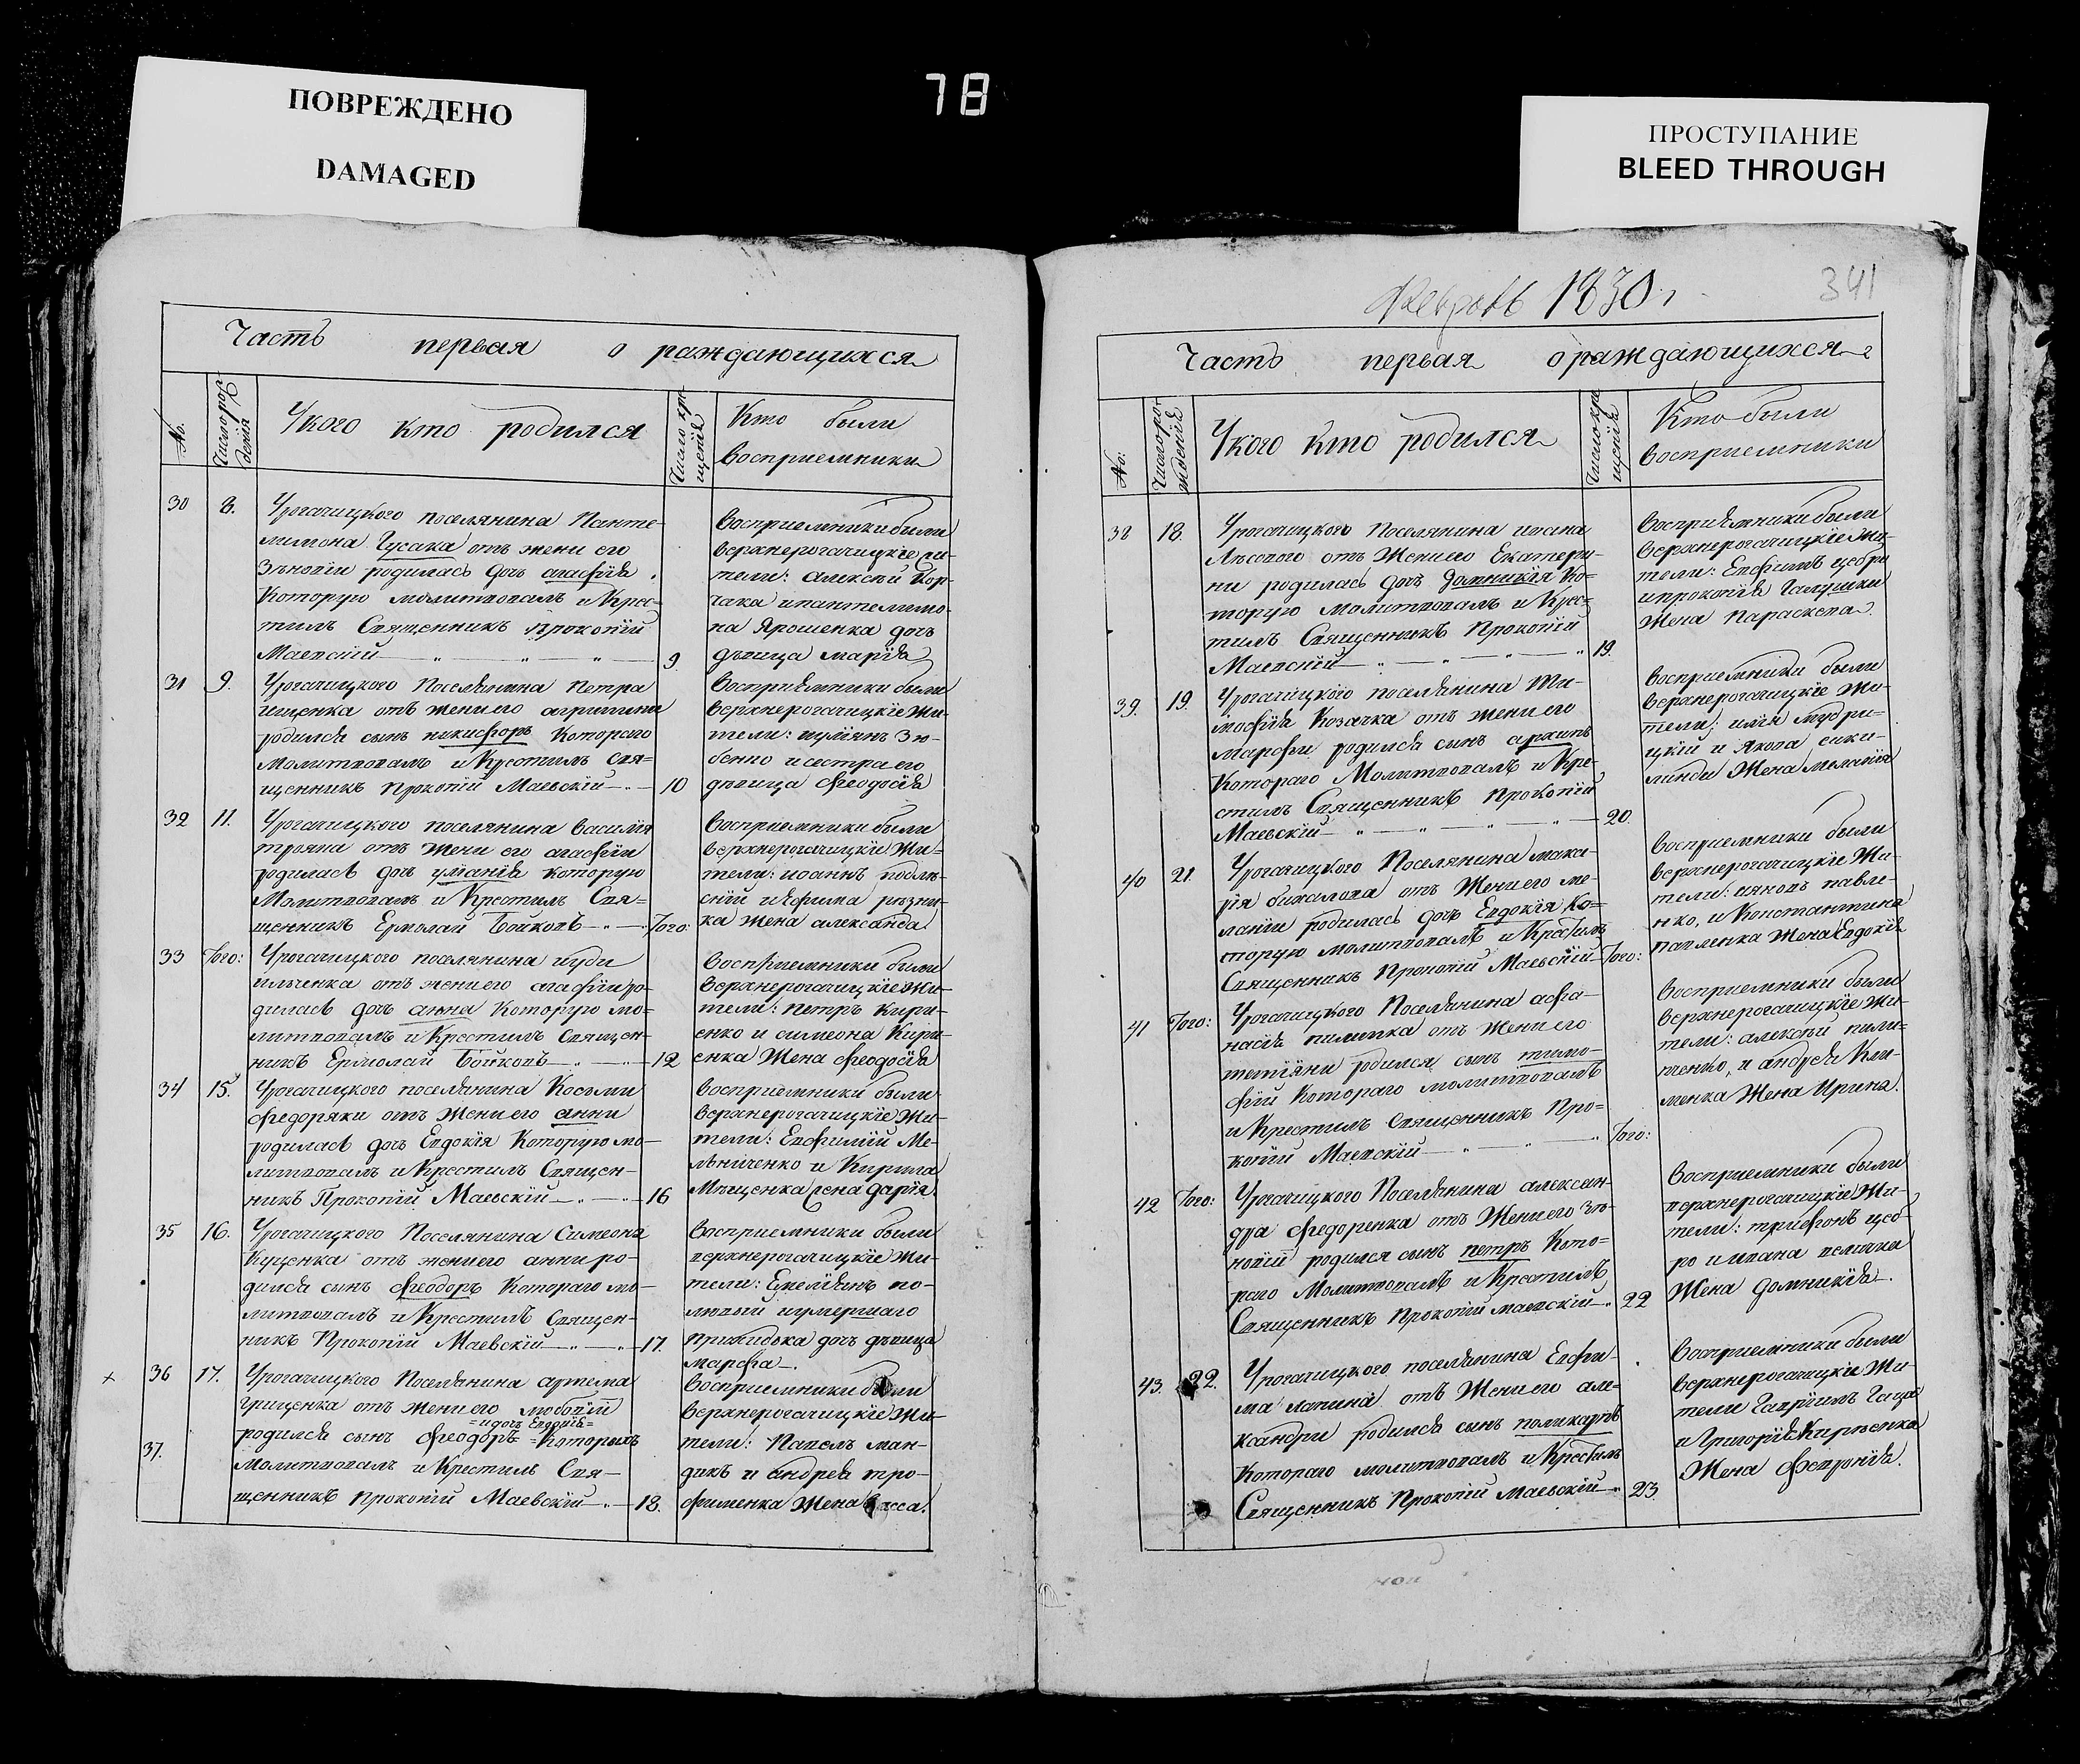 ПОВРЕЖДЕНО
DAMAGED
78
ПРОСТУПАНИЕ
BLEED THROUGH
Часть первая о раждающихся
№.
Число рождения
Укого кто родился
Число крещения
Кто были
восприемники
30 8. Урогачицкого поселянина Панте-
лимона Гусака отъ жени его
Зѣновіи родилась дочь агафія
Которую молитвовалъ и Крес-
тилъ Священникъ Прокопій
Маевскій 9.
Восприемники были
верхнерогачицкіе жи-
тели: алексѣй Кор-
чака ипантелимо-
на Ярошенка дочь
дѣвица марія
31 9. Урогачицкого Поселянина Петра
ищенка отъ жениего агрипини
родился сынъ никифоръ Которого
Молитвовалъ и Крестилъ Свя-
щенникъ Прокопій Маевскій 10
Восприемники были
верхнерогачицкіе Жи-
тели: иуліянъ Зю-
бенко исестра его
дѣвица Феодосія
32 11. Урогачицкого поселянина василія
трояна отъ жени его агафіи
родилась дочь уліанія которую
Молитвовалъ и Крестилъ Свя-
щенникъ Ермолай Бойковъ Того:
Восприемники были
верхнерогачицкіе Жи-
тели: иоаннъ подлѣ-
сній иефима рѣзни-
ка жена александра
33 Того: Урогачицкого поселянина иуди
ильченка отъ жениего агафіи ро-
дилась дочь анна Которую мо-
литвовалъ и Крестилъ Священ-
никъ Ермолай Бойковъ 12
Восприемники были
Верхнерогачицкіе Жи-
тели: Петръ Кири-
енко и симеона Кири-
енка Жена Феодосія
34 15. Урогачицкого поселянина Косьми
Федоряки отъ Жениего анни
родилась дочь Евдокія Которую мо-
литвовалъ и Крестилъ Священ-
никъ Прокопій Маевскій 16
Восприемники были
верхнерогачицкіе Жи-
тели: Евфимій Ме-
льниченко и Кирила
Мѣщенка жена дарія
35 16. Урогачицкого Поселянина Симеона
Куценка отъ жениего анни ро-
дился сынъ Феодоръ Котораго мо-
литвовалъ и Крестилъ Священ-
никъ Прокопій Маевскій 17.
Восприемники были
верхнерогачицкіе Жи-
тели: Емеліянъ по-
дочь дѣвица
марфа.
36 17. Урогачицкого Поселянина артема
Гриценка отъ жениего любовіи
=идочь Евдокія=
родился сынъ Феодоръ= =Которыхъ
37. Молитвовалъ и Крестилъ Свя-
щенникъ Прокопій Маевскій 18.
Восприемники были
верхнерогачицкіе Жи-
тели: Павелъ ман-
дикъ и андрея тро-
фименка Жена Васса.
Февраль 1830 г
341
Часть первая о раждающихся
№:
Число рождения
Укого кто родился
Число крещения
Кто были
восприемники
38 18. Урогачицкого Поселянина ивана
Лѣсового отъ Жениего Екатери-
ни родилась дочь Домникія Ко-
торую Молитвовалъ и Крес-
тилъ Священникъ Прокопій
Маевскій 19.
Восприемники были
верхнерогачицкіе Жи-
тели: Евфимъ цебро
ипрокопія Галушки
Жена Параскева
39. 19. Урогачицкого поселянина Ти-
мофія Козачка отъ жениего
марфи родился сынъ архипъ
Котораго Молитвовалъ и Кре-
стилъ Священникъ Прокопій
Маевскій 20.
Восприемники были
верхнерогачицкіе Жи-
тели: илія мудри-
цкій и Якова сики-
линди Жена меланія
40 21. Урогачицкого Поселянина мака-
рія бикалова отъ Жениего ме-
ланіи родилась дочь Евдокія Ко-
торую молитвовалъ и Крестилъ
Священникъ Прокопій Маевскій Того:
Восприемники были
верхнерогачицкіе Жи-
тели: павле-
нко, и Константина
павленка Жена Евдокія
41 Того: Урогачицкого Поселянина афа-
насія пилипка отъ жениего
тетіяни родился сынъ тимо-
фій Котораго молитвовалъ
и Крестилъ Священникъ Про-
копій Маевскій Того:
Восприемники были
верхнерогачицкіе Жи-
тели: алексѣй пили-
пенко, и андрея Кли-
менка Жена Ирина.
42 Того: Урогачицкого Поселянина алексан-
дра Федоренка отъ Жениего Зѣ-
новіи родился сынъ петръ Кото-
раго Молитвовалъ и Крестилъ
Священникъ Прокопій маевскій 22
Восприемники были
верхнерогачицкіе Жи-
тели: трифонъ цеб-
ро и ивана величка
Жена домникія.
43. 22. Урогачицкого поселянина Евфи-
ма лапина отъ Жениего але-
ксандри родился сынъ поликарпъ
Котораго молитвовалъ и Крестилъ
Священникъ Прокопій Маевскій 23.
Восприемники были
верхнерогачицкіе Жи-
тели Гавріилъ Гаца
и Григорія Кирѣенка
Жена Февронія.